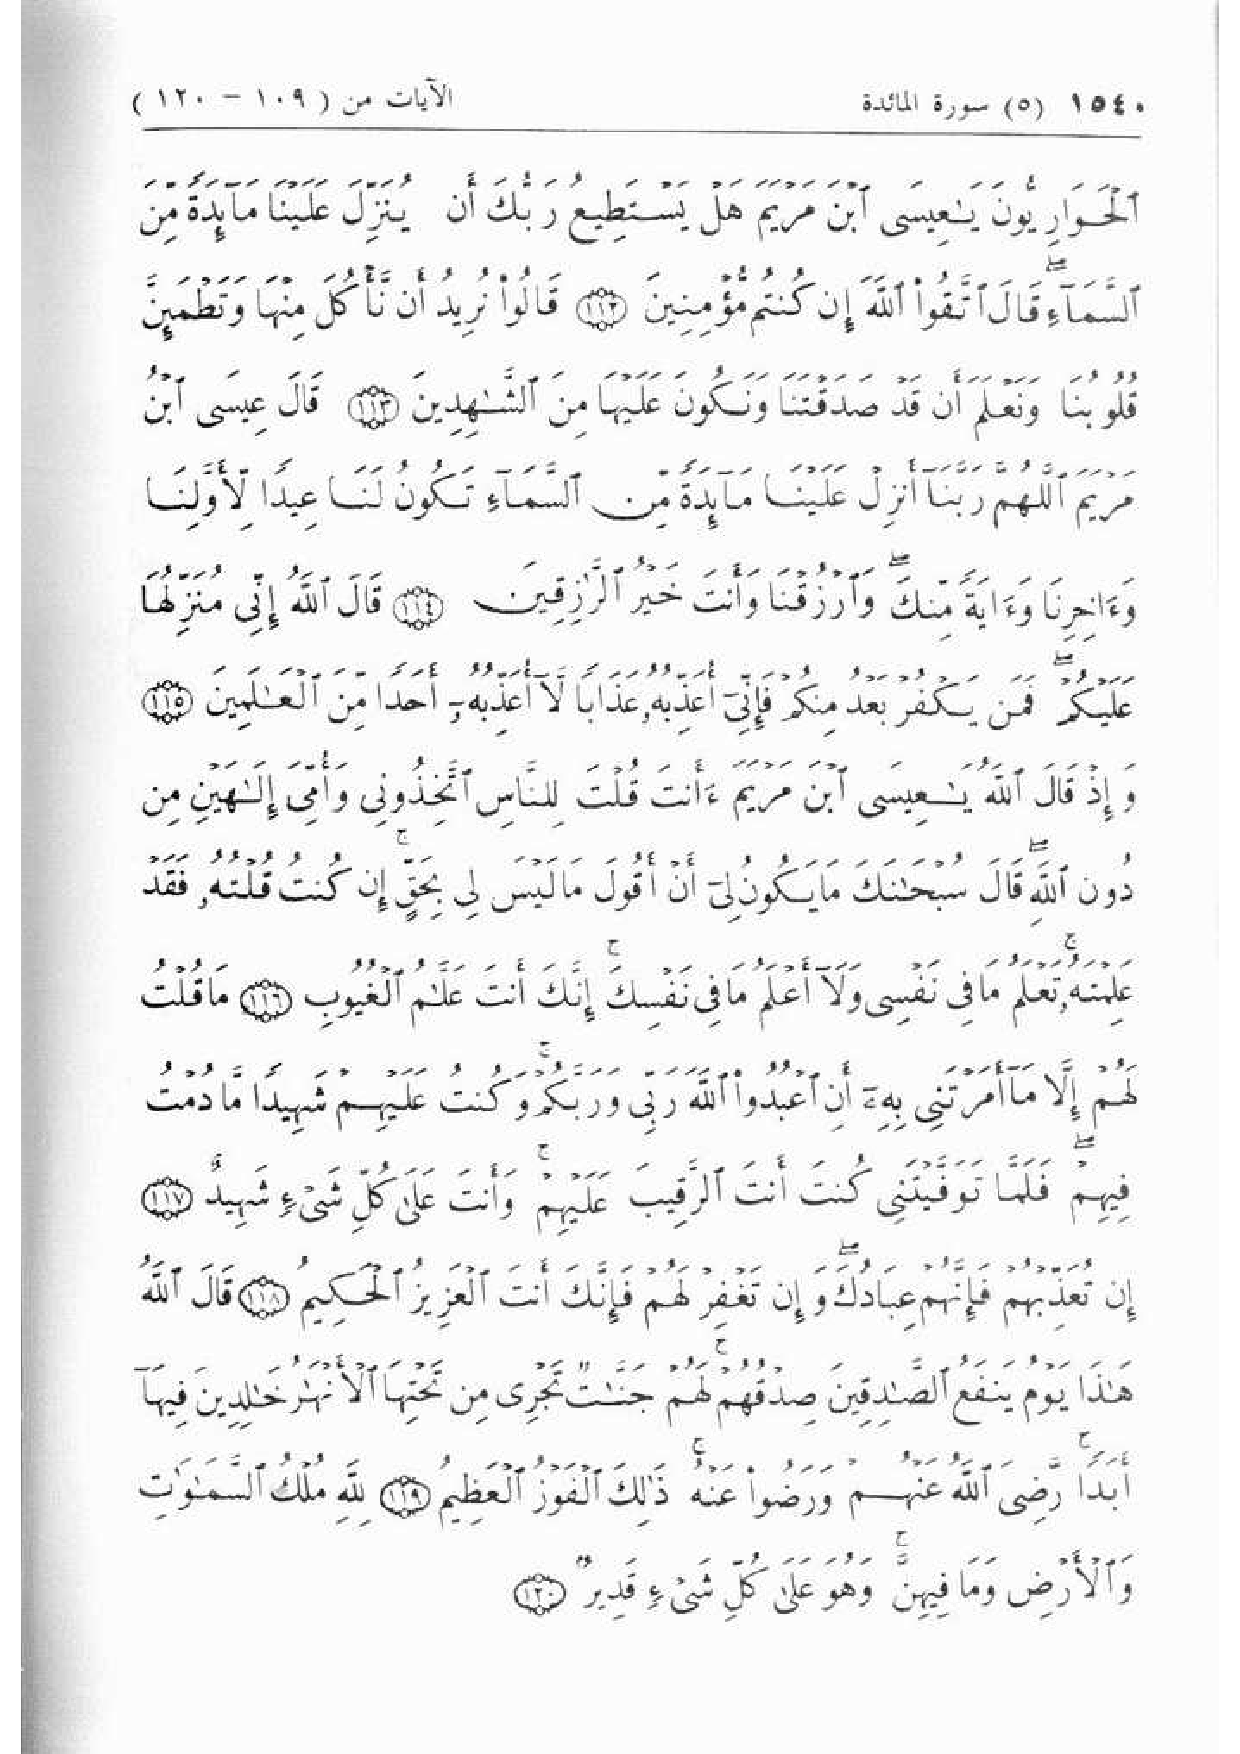 ١٥٤٠ (٥) سورة المائدة الآيات من ( ١٠٩ - ١٢٠ )
ٱلْحَوَارِيُّونَ يَٰعِيسَى ٱبْنَ مَرْيَمَ هَلْ يَسْتَطِيعُ رَبُّكَ أَن يُنَزِّلَ عَلَيْنَا مَآئِدَةً مِّنَ
ٱلسَّمَآءِ ۖ قَالَ ٱتَّقُوا۟ ٱللَّهَ إِن كُنتُم مُّؤْمِنِينَ ١١٢ قَالُوا۟ نُرِيدُ أَن نَّأْكُلَ مِنْهَا وَتَطْمَئِنَّ
قُلُوبُنَا وَنَعْلَمَ أَن قَدْ صَدَقْتَنَا وَنَكُونَ عَلَيْهَا مِنَ ٱلشَّٰهِدِينَ ١١٣ قَالَ عِيسَى ٱبْنُ
مَرْيَمَ ٱللَّهُمَّ رَبَّنَآ أَنزِلْ عَلَيْنَا مَآئِدَةً مِّنَ ٱلسَّمَآءِ تَكُونُ لَنَا عِيدًا لِّأَوَّلِنَا
وَءَاخِرِنَا وَءَايَةً مِّنكَ ۖ وَٱرْزُقْنَا وَأَنتَ خَيْرُ ٱلرَّٰزِقِينَ ١١٤ قَالَ ٱللَّهُ إِنِّى مُنَزِّلُهَا
عَلَيْكُمْ ۖ فَمَن يَكْفُرْ بَعْدُ مِنكُمْ فَإِنِّىٓ أُعَذِّبُهُۥ عَذَابًا لَّآ أُعَذِّبُهُۥٓ أَحَدًا مِّنَ ٱلْعَٰلَمِينَ ١١٥
وَإِذْ قَالَ ٱللَّهُ يَٰعِيسَى ٱبْنَ مَرْيَمَ ءَأَنتَ قُلْتَ لِلنَّاسِ ٱتَّخِذُونِى وَأُمِّىَ إِلَٰهَيْنِ مِن
دُونِ ٱللَّهِ ۖ قَالَ سُبْحَٰنَكَ مَا يَكُونُ لِىٓ أَنْ أَقُولَ مَا لَيْسَ لِى بِحَقٍّ ۚ إِن كُنتُ قُلْتُهُۥ فَقَدْ
عَلِمْتَهُۥ ۚ تَعْلَمُ مَا فِى نَفْسِى وَلَآ أَعْلَمُ مَا فِى نَفْسِكَ ۚ إِنَّكَ أَنتَ عَلَّٰمُ ٱلْغُيُوبِ ١١٦ مَا قُلْتُ
لَهُمْ إِلَّا مَآ أَمَرْتَنِى بِهِۦٓ أَنِ ٱعْبُدُوا۟ ٱللَّهَ رَبِّى وَرَبَّكُمْ ۚ وَكُنتُ عَلَيْهِمْ شَهِيدًا مَّا دُمْتُ
فِيهِمْ ۖ فَلَمَّا تَوَفَّيْتَنِى كُنتَ أَنتَ ٱلرَّقِيبَ عَلَيْهِمْ ۚ وَأَنتَ عَلَىٰ كُلِّ شَىْءٍ شَهِيدٌ ١١٧
إِن تُعَذِّبْهُمْ فَإِنَّهُمْ عِبَادُكَ ۖ وَإِن تَغْفِرْ لَهُمْ فَإِنَّكَ أَنتَ ٱلْعَزِيزُ ٱلْحَكِيمُ ١١٨ قَالَ ٱللَّهُ
هَٰذَا يَوْمُ يَنفَعُ ٱلصَّٰدِقِينَ صِدْقُهُمْ ۚ لَهُمْ جَنَّٰتٌ تَجْرِى مِن تَحْتِهَا ٱلْأَنْهَٰرُ خَٰلِدِينَ فِيهَآ
أَبَدًا ۚ رَّضِىَ ٱللَّهُ عَنْهُمْ وَرَضُوا۟ عَنْهُ ۚ ذَٰلِكَ ٱلْفَوْزُ ٱلْعَظِيمُ ١١٩ لِلَّهِ مُلْكُ ٱلسَّمَٰوَٰتِ
وَٱلْأَرْضِ وَمَا فِيهِنَّ ۚ وَهُوَ عَلَىٰ كُلِّ شَىْءٍ قَدِيرٌ ١٢٠